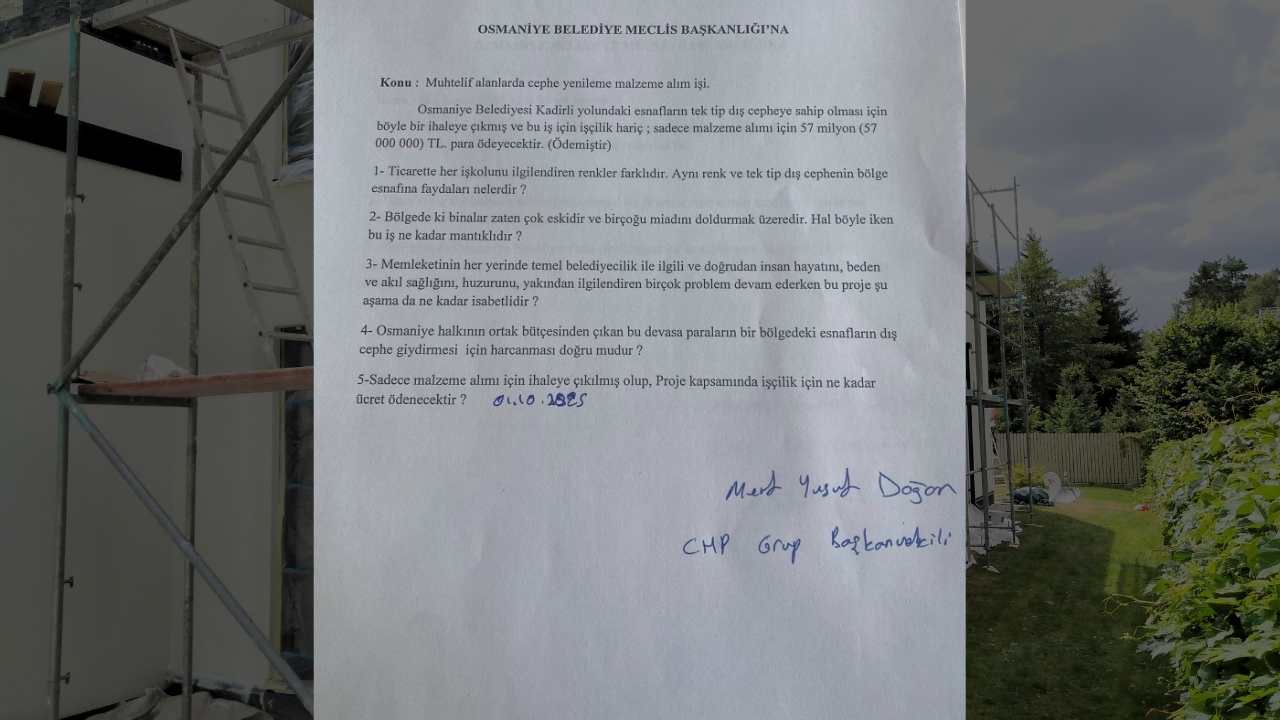 OSMANİYE BELEDİYE MECLİS BAŞKANLIĞI'NA
Konu : Muhtelif alanlarda cephe yenileme malzeme alım işi.
Osmaniye Belediyesi Kadirli yolundaki esnafların tek tip dış cepheye sahip olması için
böyle bir ihaleye çıkmış ve bu iş için işçilik hariç ; sadece malzeme alımı için 57 milyon (57
000 000) TL. para ödeyecektir. (Ödemiştir)
1- Ticarette her işkolunu ilgilendiren renkler farklıdır. Aynı renk ve tek tip dış cephenin bölge
esnafına faydaları nelerdir ?
2- Bölgede ki binalar zaten çok eskidir ve birçoğu miadını doldurmak üzeredir. Hal böyle iken
bu iş ne kadar mantıklıdır ?
3- Memleketinin her yerinde temel belediyecilik ile ilgili ve doğrudan insan hayatını, beden
ve akıl sağlığını, huzurunu, yakından ilgilendiren birçok problem devam ederken bu proje şu
aşama da ne kadar isabetlidir ?
4- Osmaniye halkının ortak bütçesinden çıkan bu devasa paraların bir bölgedeki esnafların dış
cephe giydirmesi için harcanması doğru mudur ?
5-Sadece malzeme alımı için ihaleye çıkılmış olup, Proje kapsamında işçilik için ne kadar
ücret ödenecektir ? 01.10.2025
Mert Yusuf Doğan
CHP Grup Başkanvekili